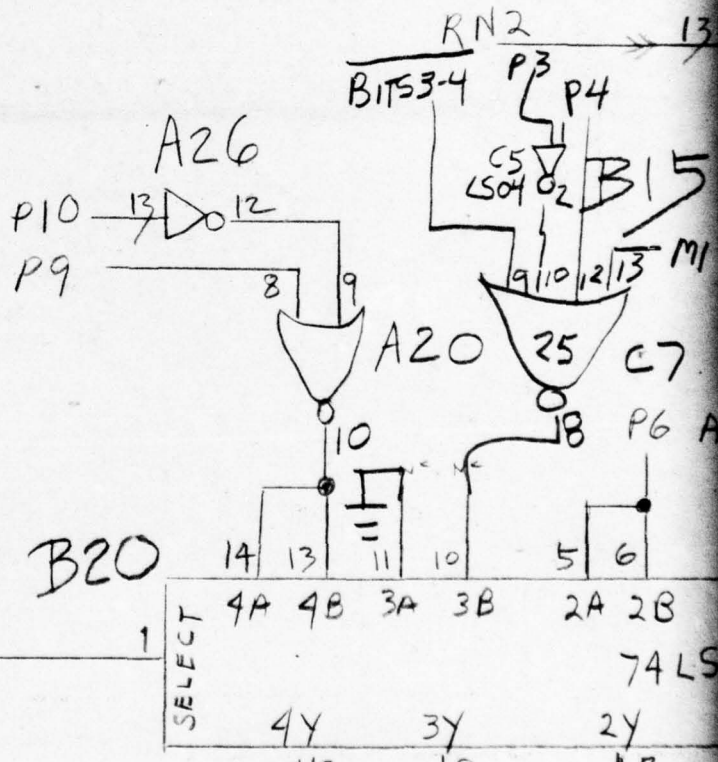 RN2
13
BITS3-4
P3
P4
A26
C5
LS04
2
B15
P10
13
12
P9
8
9
9
10
12
13
M1
A20
25
C7
10
8
P6
A
B20
14
13
11
10
5
6
4A
4B
3A
3B
2A
2B
1
SELECT
74LS
4Y
3Y
2Y